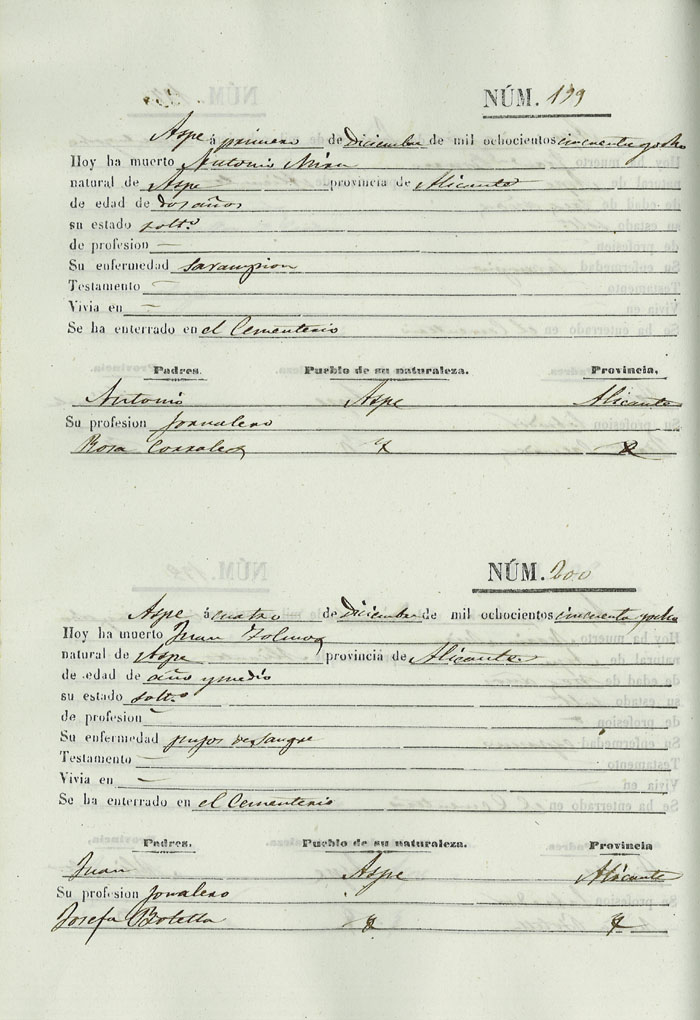 NÚM. 199
Aspe á primero de Diciembre de mil ochocientos cincuenta y ocho
Hoy ha muerto Antonio Mira
natural de Aspe provincia de Alicante
de edad de dos años
su estado solt.º
de profesion —
Su enfermedad sarampion
Testamento —
Vivia en —
Se ha enterrado en el Cementerio
Padres. Pueblo de su naturaleza. Provincia.
Antonio Aspe Alicante
Su profesion Jornalero
Rosa
NÚM. 200
Aspe á cuatro de Diciembre de mil ochocientos cincuenta y ocho
Hoy ha muerto Juan
natural de Aspe provincia de Alicante
de edad de año y medio
su estado solt.º
de profesion —
Su enfermedad pujos de sangre
Testamento —
Vivia en —
Se ha enterrado en el Cementerio
Padres. Pueblo de su naturaleza. Provincia
Juan Aspe Alicante
Su profesion Jornalero
Josefa Botella